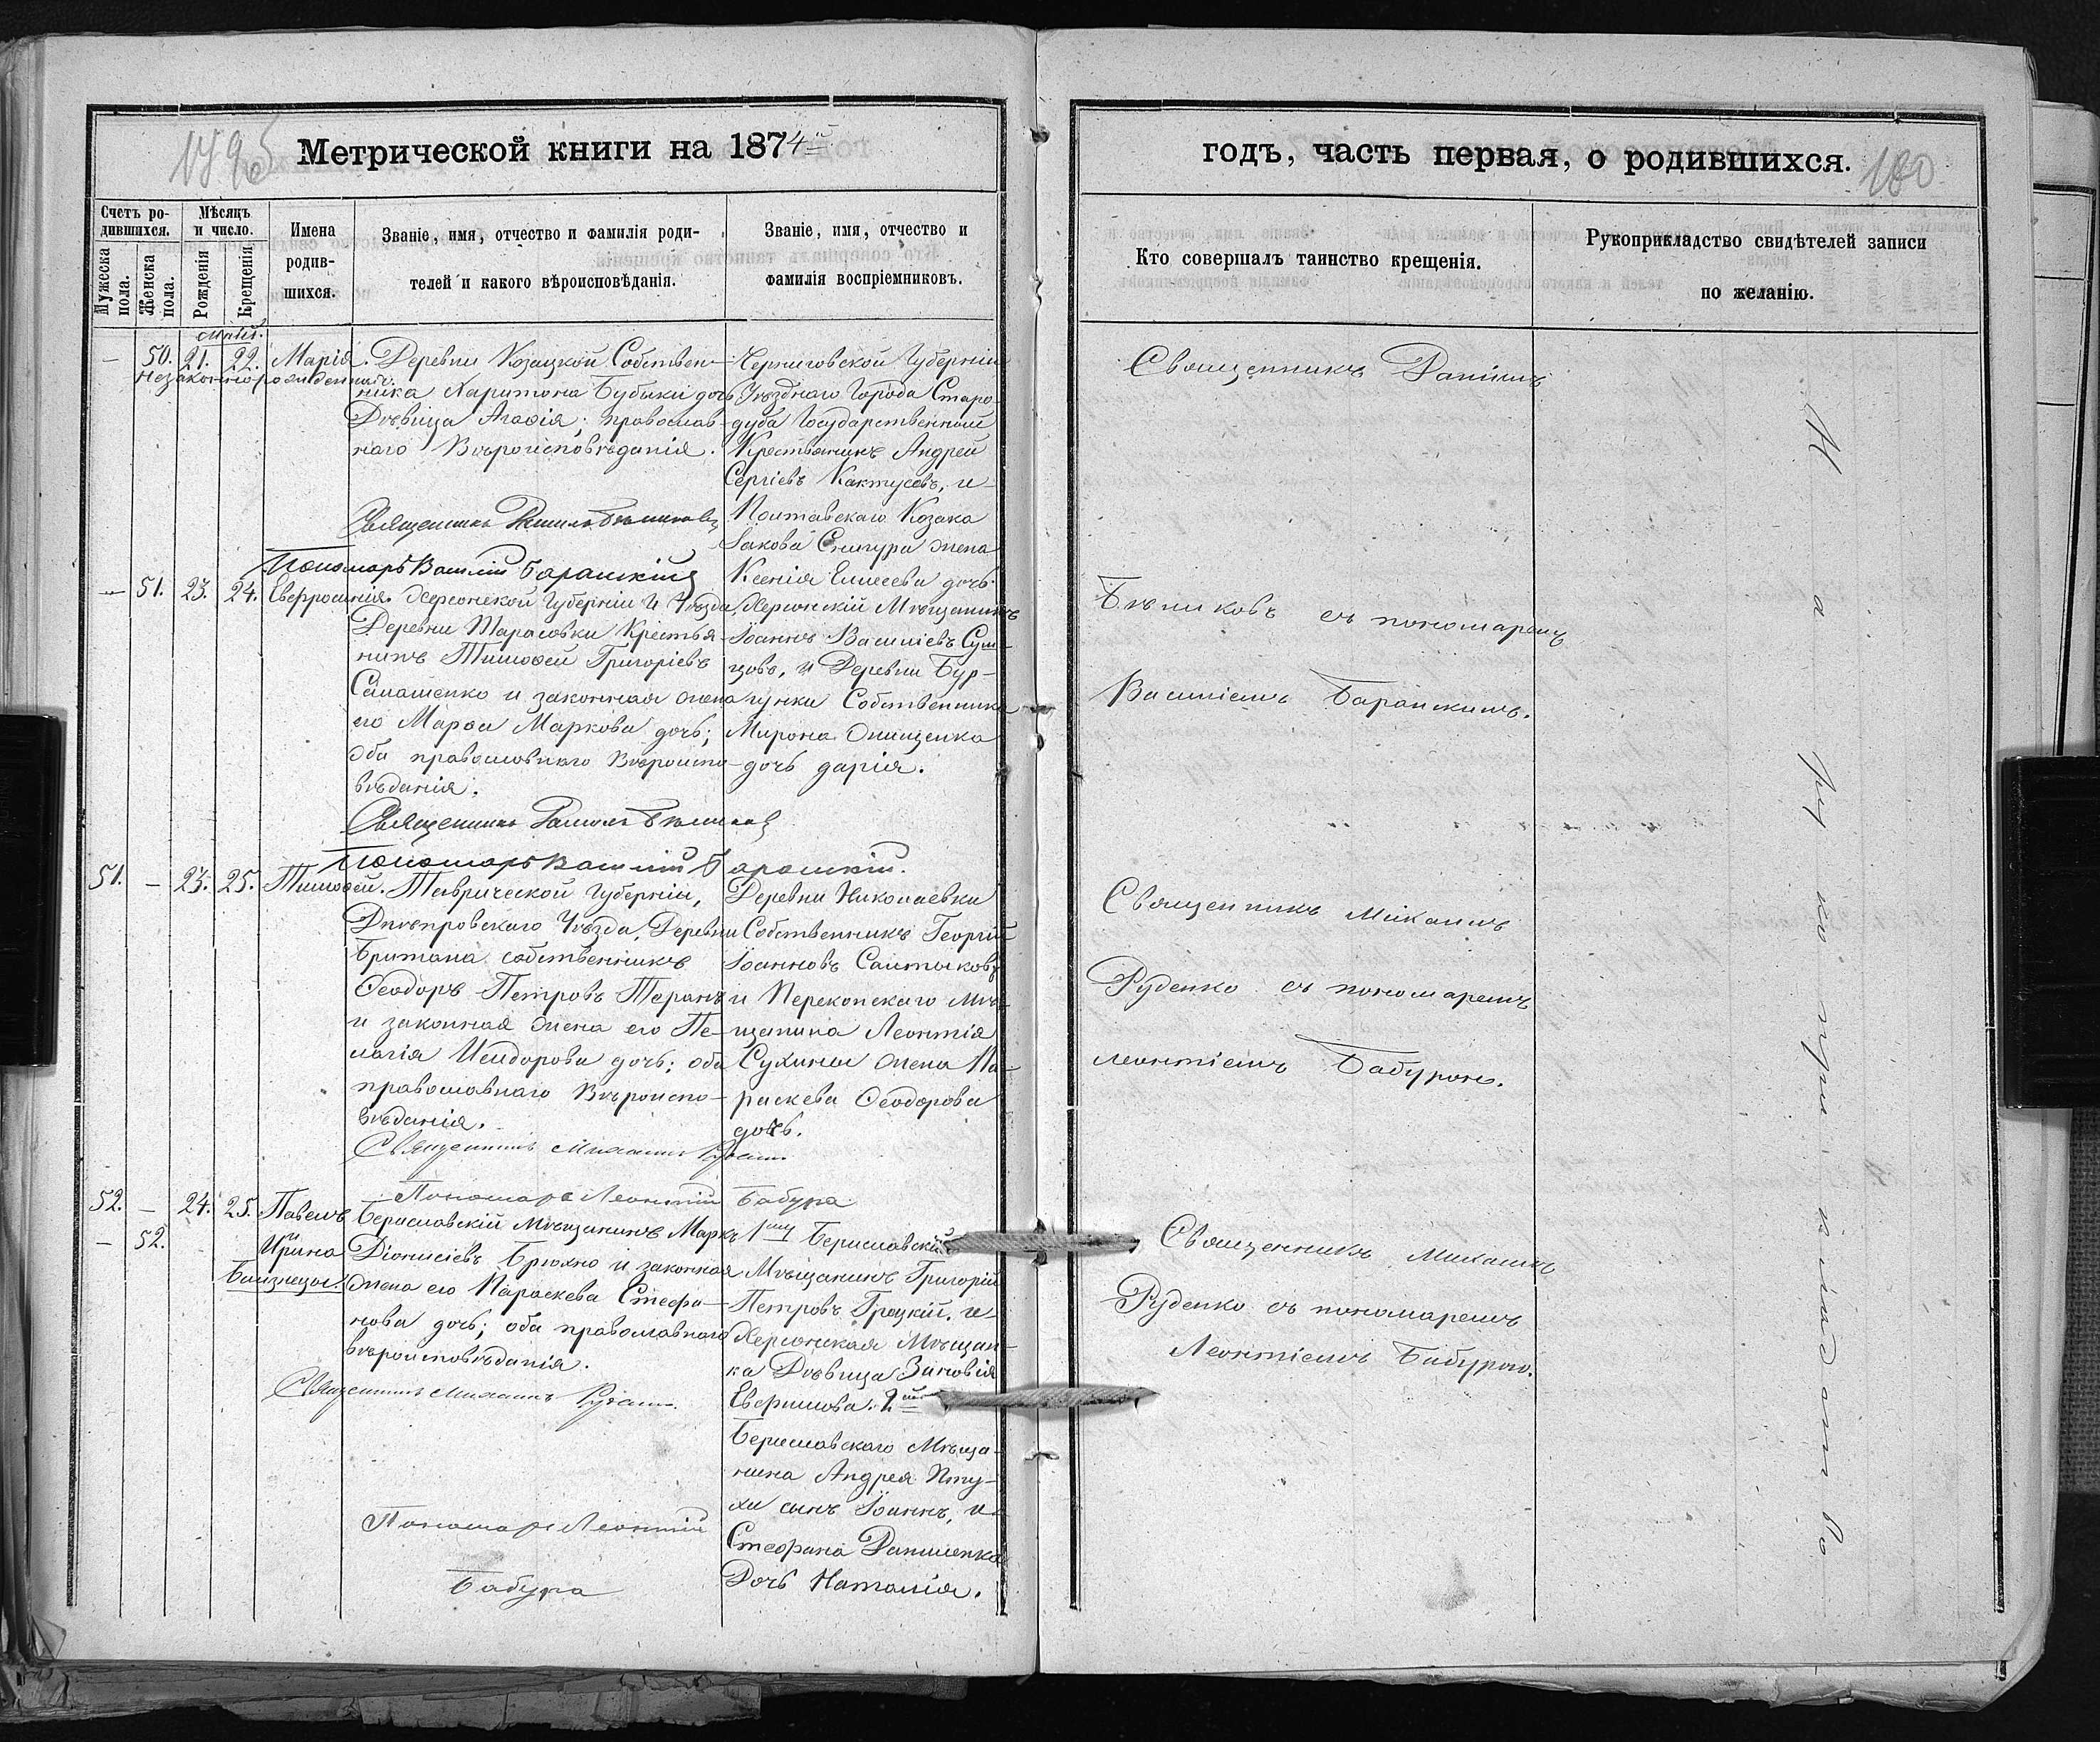 Метрической книги на 1874й
годъ, часть первая, о родившихся.
180
Счетъ ро-
дившихся.
Мѣсяцъ
и число.
Имена
родив-
шихся.
Званіе, имя, отчество и фамилія роди-
телей и какого вѣроисповѣданія.
Званіе, имя, отчество и
фамилія воспріемниковъ.
Мужеска
пола.
Женска
пола.
Рожденія
Крещенія.
Кто совершалъ таинство крещенія.
Рукоприкладство свидѣтелей записи
по желанію.
Маій.
— 50. 21. 22. Марія.
незаконнорожденная.
Деревни Козацкой Собствен-
ника Харитона Бубыки дочь
Дѣвица Агафія; православ-
наго Вѣроисповѣданія.
Священникъ Даніилъ Бѣликовъ
Пономарь Василій Баранскій
Черниговской Губерніи
Уѣзднаго Города Старо
дуба Государственный
Крестьянинъ Андрей
Сергіевъ Кактусовъ, и
Полтавскаго Козака
Іакова Снигура жена
Ксенія Елисеева дочь
Священникъ Даніилъ
— 51. 23. 24. Евфросинія.
Херсонской Губерніи и Уѣзда
Деревни Тарасовки Крестья-
нинъ Тимофей Григоріевъ
Силашенко и законная жена
его Марфа Маркова дочь;
оба православнаго Вѣроиспо-
вѣданія.
Священникъ Даніилъ Бѣликовъ
Пономарь Василій Баранскій.
Херсонскій Мѣщанинъ
Іоаннъ Василіевъ Сум-
цовъ, и Деревни Бур-
гунки Собственника
Мирона Онищенка
дочь дарія.
Бѣликовъ съ пономаремъ
Василіемъ Баранскимъ.
51. — 23. 25. Тимофей.
Таврической Губерніи,
Днѣпровскаго Уѣзда, Деревни
Британа собственникъ
Феодоръ Петровъ Таранъ
и законная жена его Пе-
лагія Исидорова дочь; оба
православнаго Вѣроиспо-
вѣданія.
Священникъ Михаилъ Руденко
Пономарь Леонтій Бабура
Деревни Николаевки
Собственникъ Георгій
Іоанновъ Салтыковъ
и Перекопскаго Мѣ-
щанина Леонтія
Сухины жена Па-
раскева Феодорова
дочь.
Священникъ Михаилъ
Руденко съ пономаремъ
леонтіемъ Бабурою.
52. — 24. 25. Павелъ
— 52. Ирина
Близнецы.
Бериславскій Мѣщанинъ Маркъ
Діонисіевъ Брюхно и законная
жена его Параскева Стефа-
нова дочь; оба православнаго
вѣроисповѣданія.
Священникъ Михаилъ Руденко
Пономарь Леонтій
Бабура
1му Бериславскій
Мѣщанинъ Григорій
Петровъ Грецкій. и
Херсонская Мѣщан-
ка Дѣвица Зиновія
Ефримова. 2й
Бериславскаго Мѣща-
нина Андрея Пту-
хи сынъ Іоаннъ, и
Стефана Даниленка
Дочь Наталія.
Священникъ Михаилъ
Руденко съ пономаремъ
Леонтіемъ Бабурою.